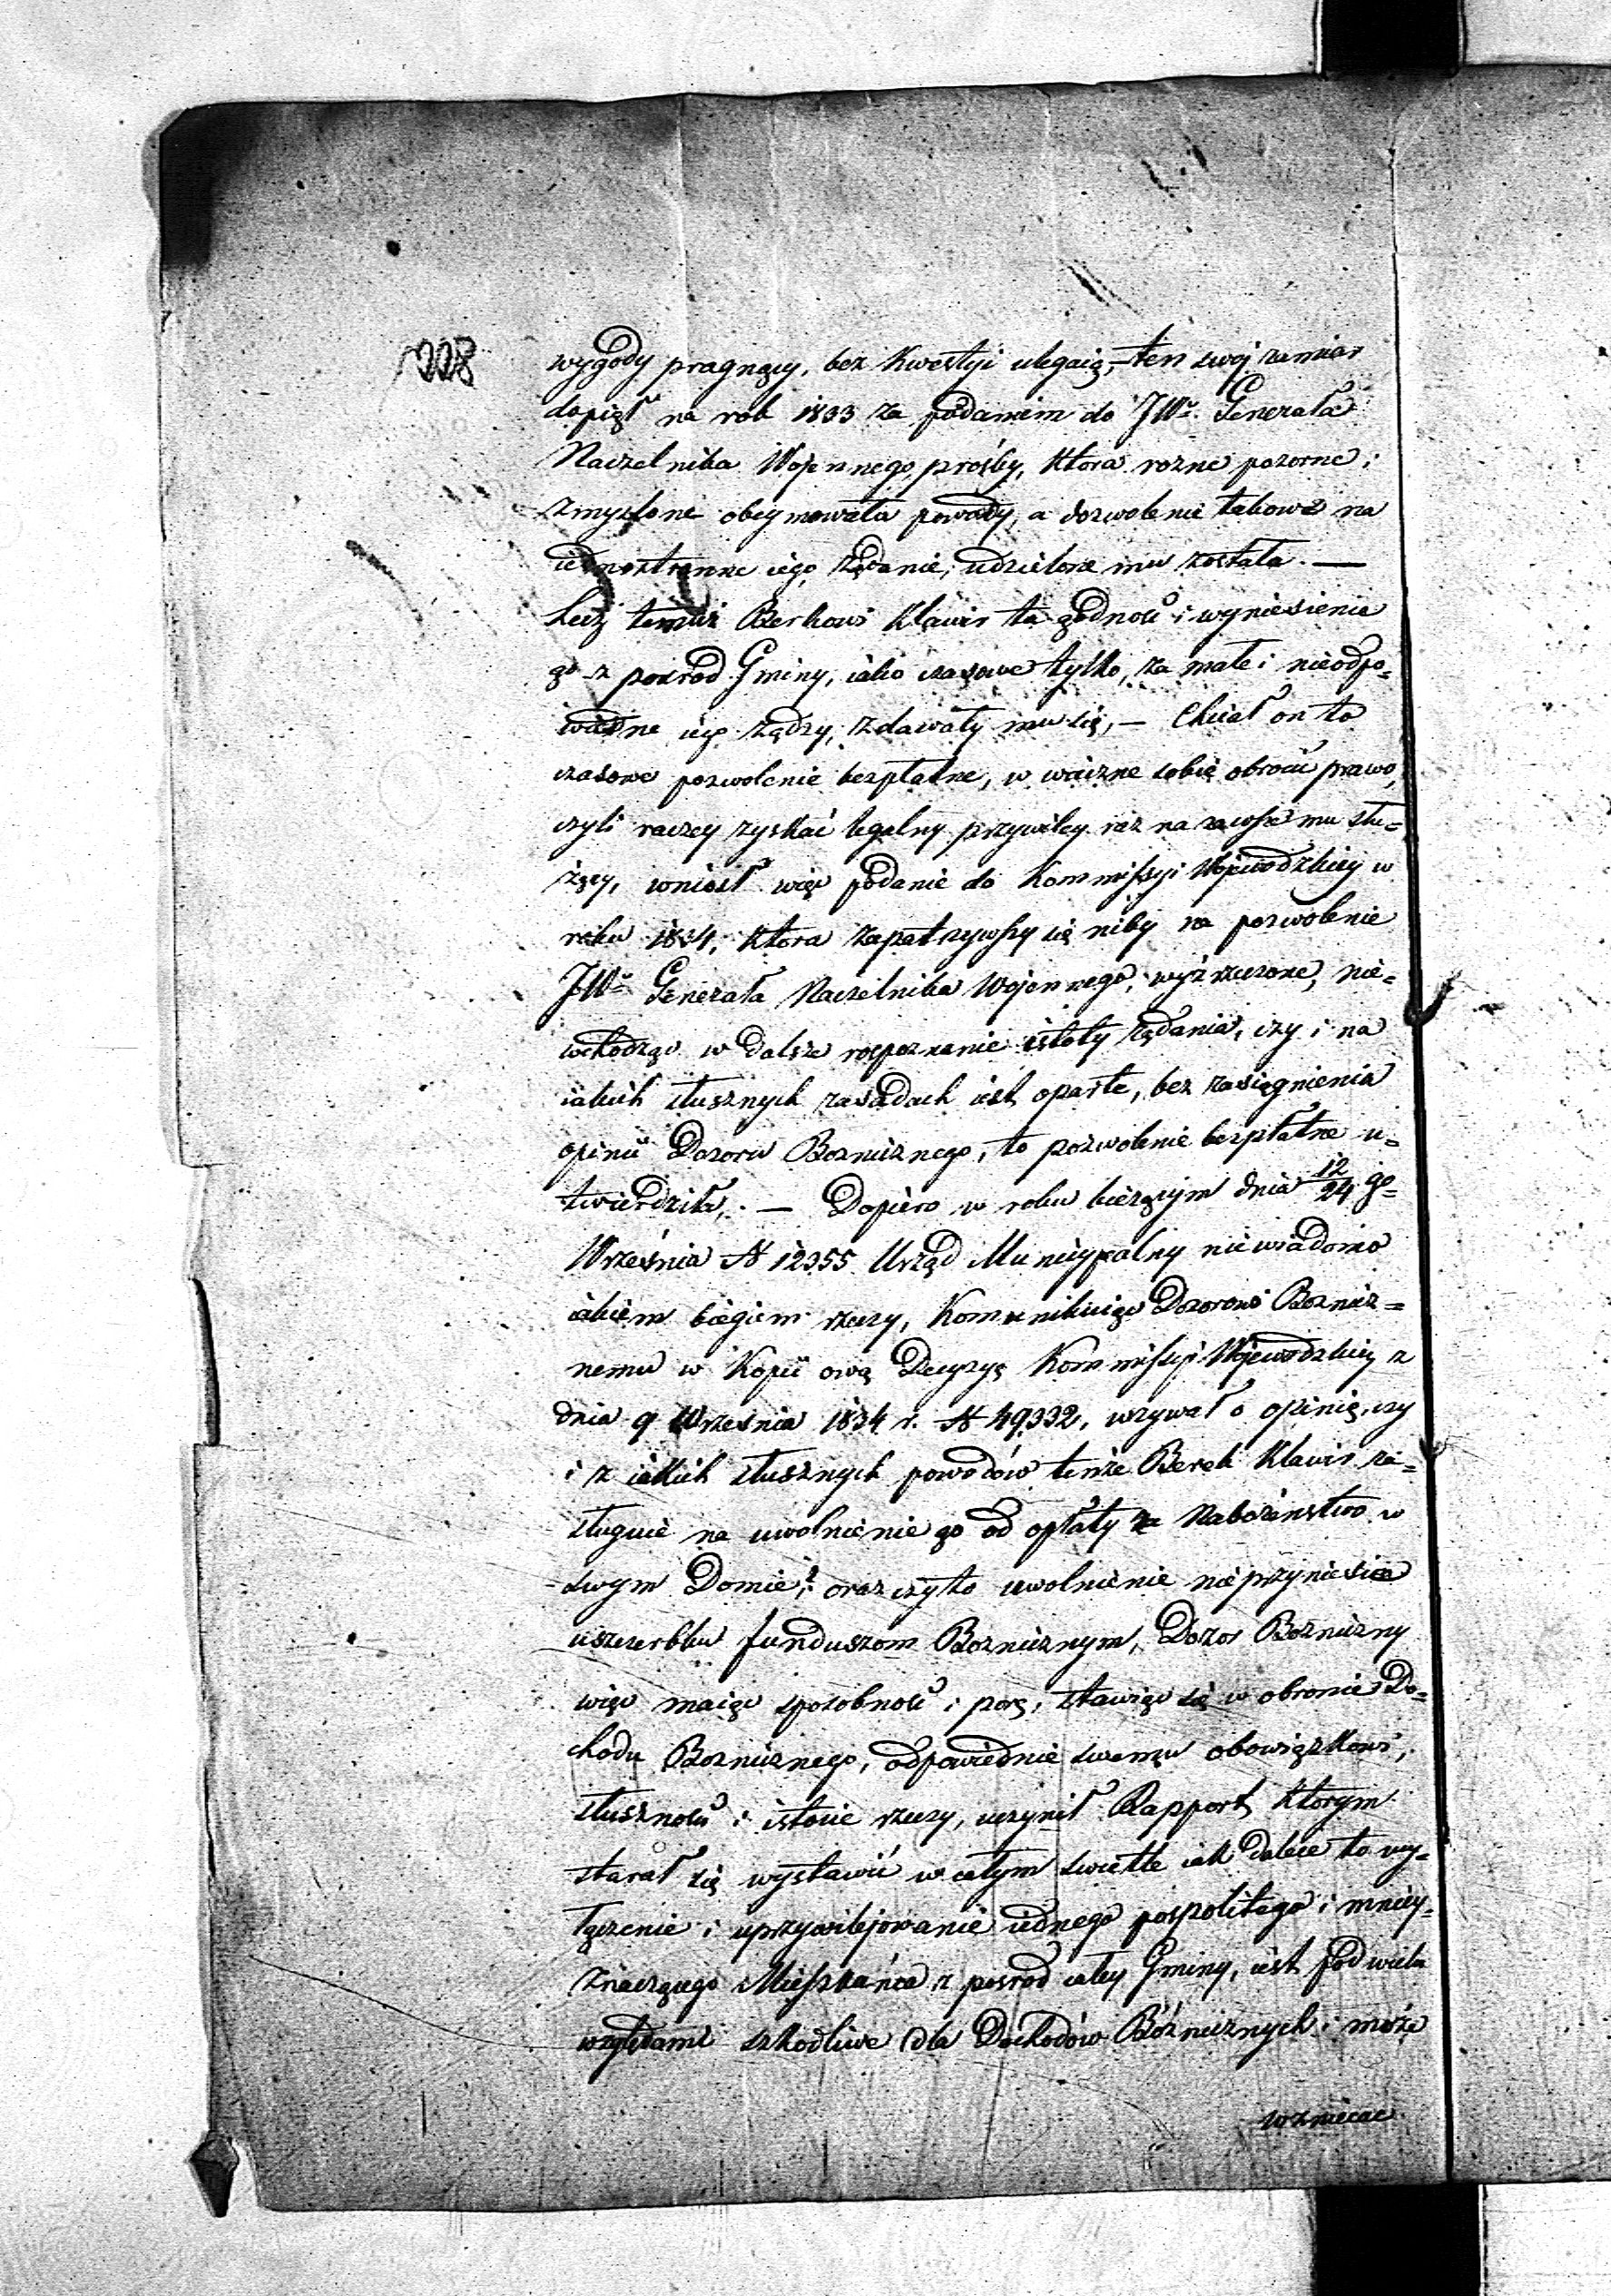 228
wygody pragnący, bez kwestyi ulegaią, – ten swoj zamiar
dopiął na rok 1833 za podaniem do JWo. Generała
Naczelnika Wojennego, prośby, która rozne pozorne i
zmyslone obeymowała powody, a dozwolenie takowe na
iednostronne iego żądanie, udzielone mu została. —
Lecz temuż Berkowi Klawir ta godność i wyniesienie
go z pośrod Gminy, iako czasowe tylko, za małe i nieodpo-
wiedne iego żądzy, zdawały mu się, – Chciał on to
czasowe pozwolenie bezpłatne, w wieczne sobie obrocić prawo,
czyli raczey zyskać legalny przywiley raz na zawsze mu słu-
żący, wniosł więc podanie do Kommissyi Wojewodzkiey w
roku 1834, ktora zapatrzywszy się niby na pozwolenie
JWo. Generała Naczelnika Wojennego, wyż rzeczone, nie-
wchodząc w dalsze rozpoznanie istoty żądania, czy i na
iakich słusznych zasadach iest oparte, bez zasiągnienia
opinii Dozoru Boznicznego, to pozwolenie bezpłatne u-
twierdziła. — Dopiero w roku bieżącym dnia 12/24 go-
Września N 12355 Urząd Municypalny niewiadomo
iakiem biegiem rzeczy, Komunikuiąc Dozorowi Boznicz-
nemu w Kopii ową Decyzyą Kommissyi Wojewodzkiey z
dnia 9 Września 1834 r. N 49332, wzywał o opinią, czy
i z iakich słusznych powodów tenże Berek Klawir za-
sługuie na uwolnienie go od opłaty za Nabożeństwo w
swym Domie? oraz czy to uwolnienie nieprzyniesie
uszczerbku funduszom Boznicznym, Dozor Boźniczny
więc maiąc sposobność i porę, stawiąc się w obronie Do-
chodu Boznicznego, odpowiednie swemu obowiązkowi,
słuszność i istocie rzeczy, uczynił Rapport, ktorym
starał się wystawić w całym świetle iak dalece to wy-
łączenie i uprzywilejowanie iednego pospolitego i mniey-
znaczącego Mieszkańca z pośrod całey Gminy, iest pod wielu
względami szkodliwe dla Dochodów Bóźnicznych i może
wzniecać